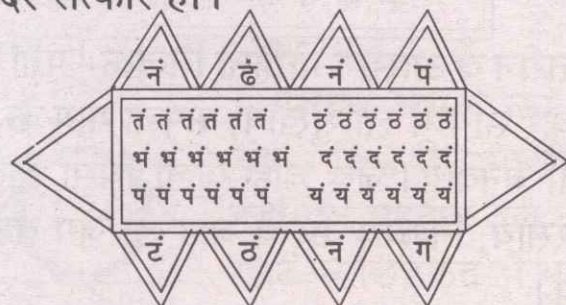 सत्कार हो।
नं ढं नं पं
तं तं तं तं तं तं ठं ठं ठं ठं ठं ठं
भं भं भं भं भं भं दं दं दं दं दं दं
पं पं पं पं पं पं यं यं यं यं यं यं
टं ठं नं गं